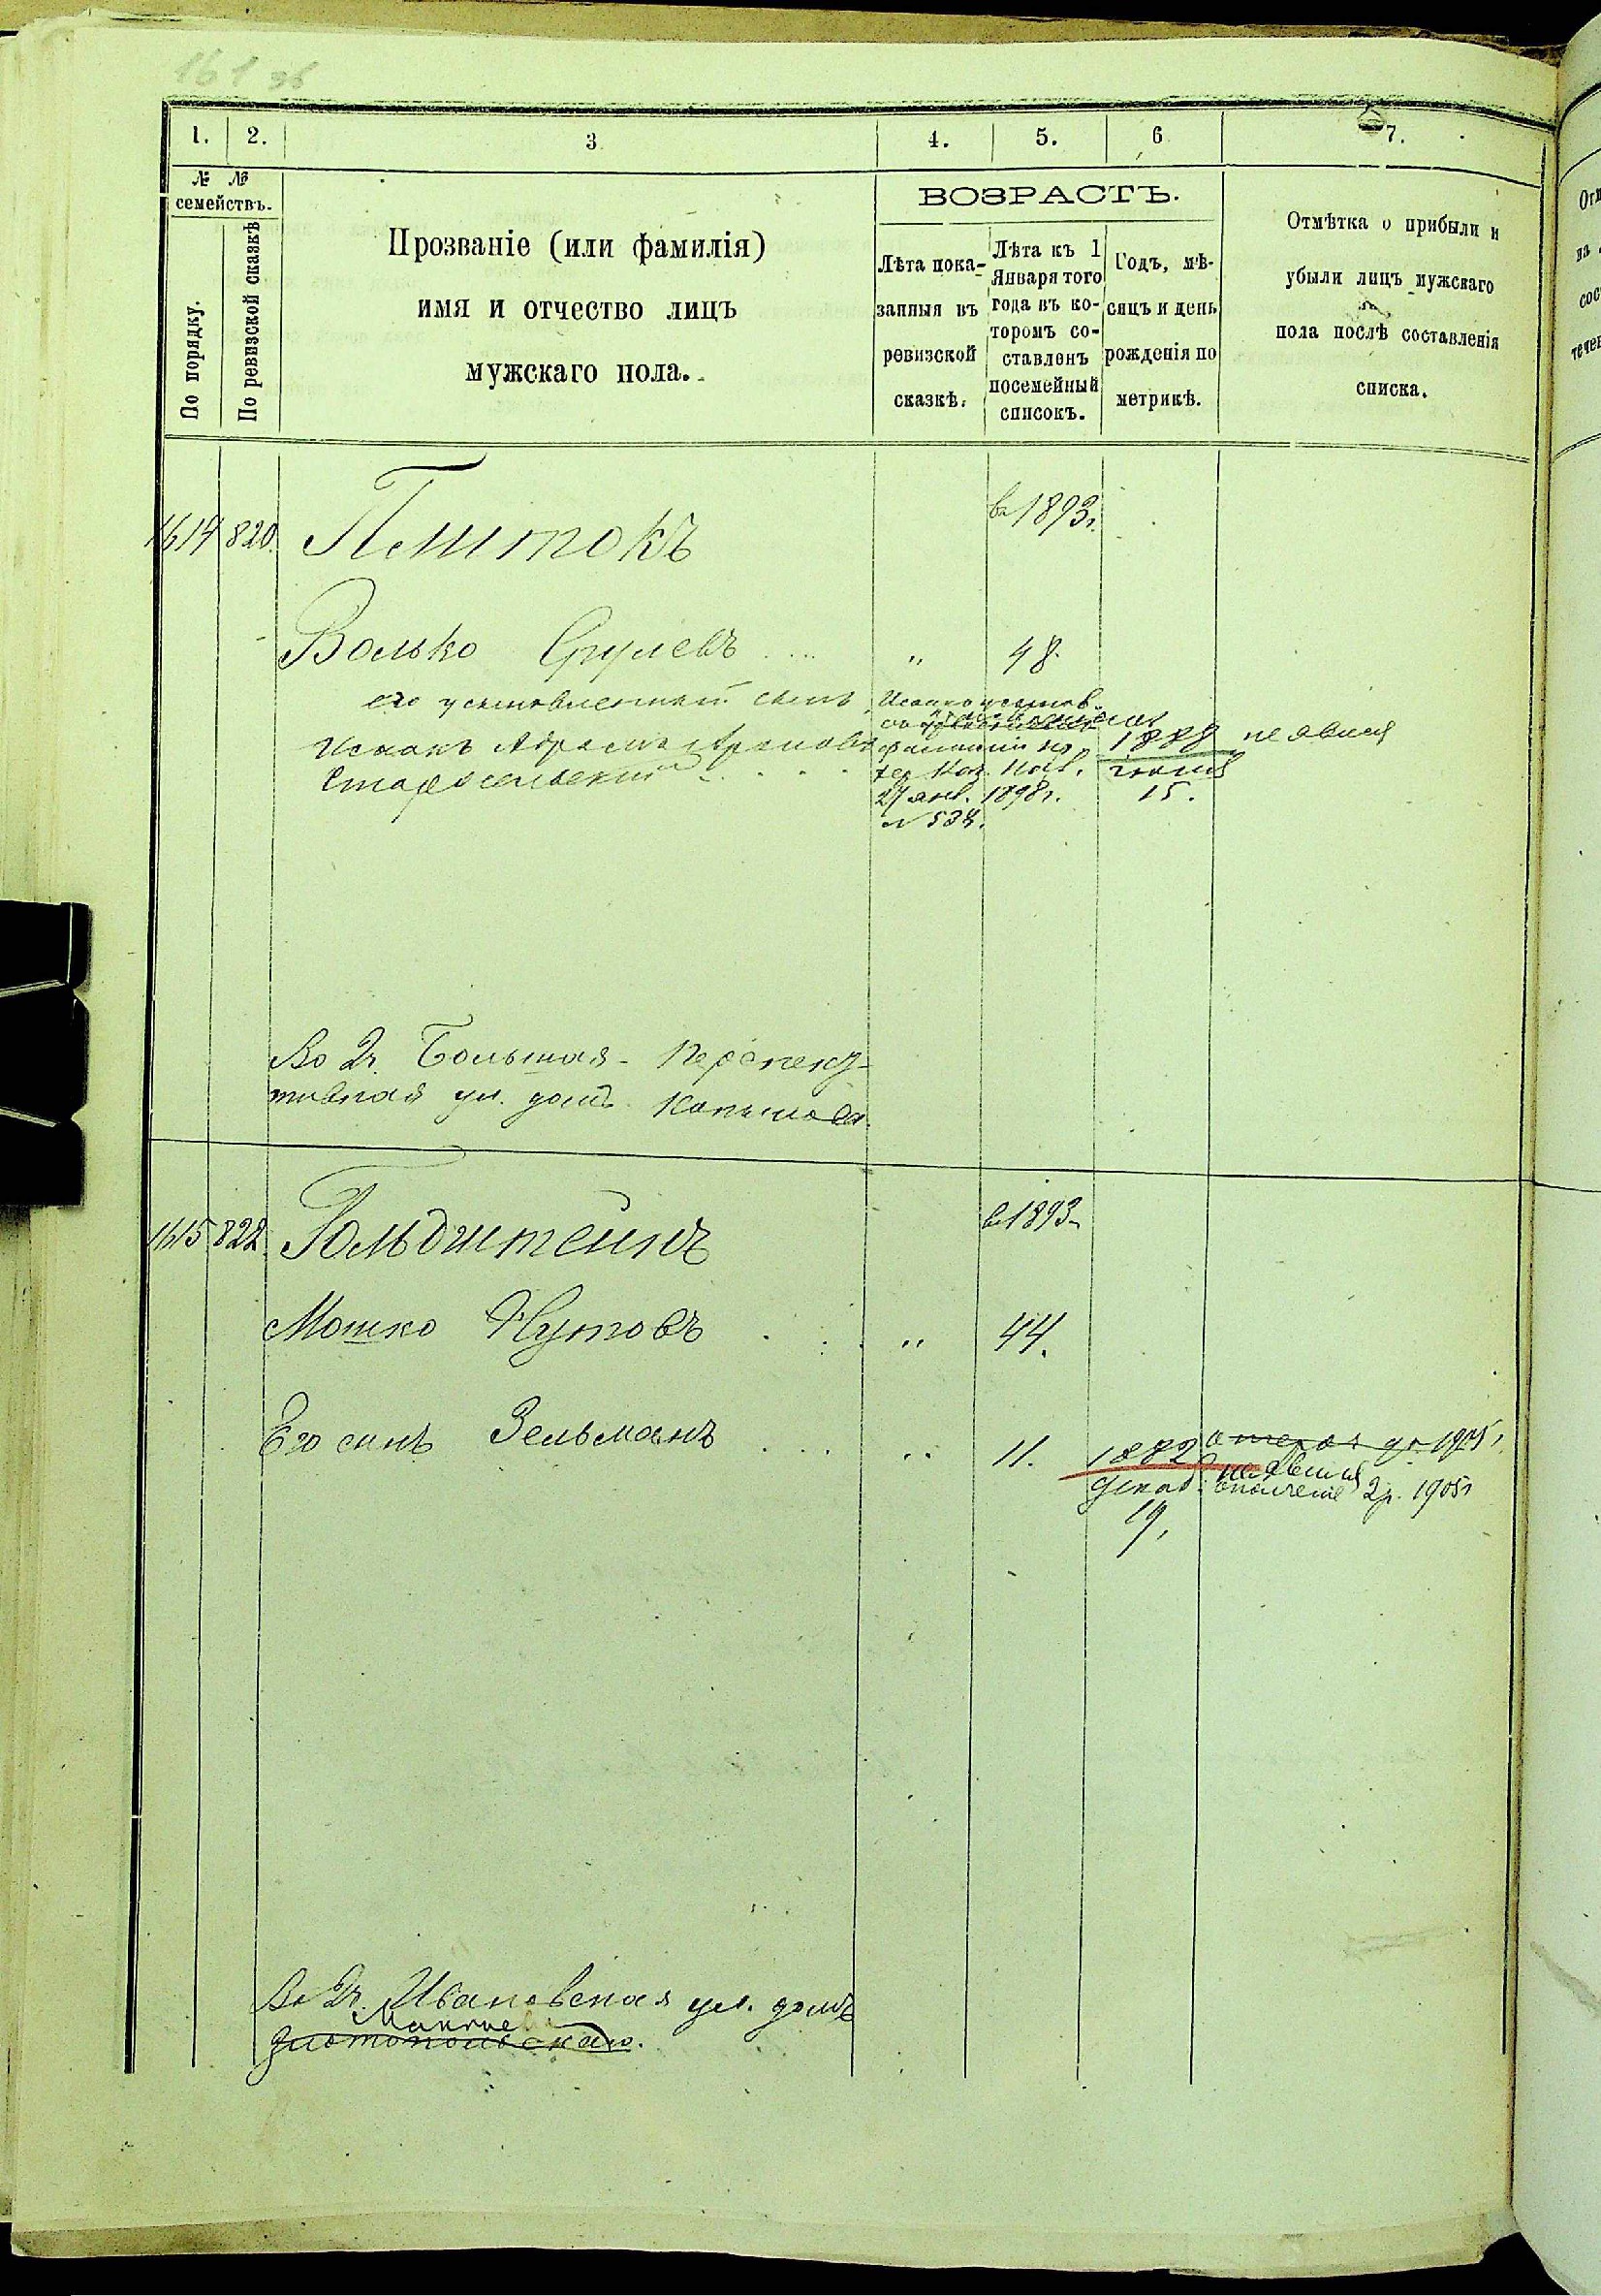 161 об
1. 2. 3 4. 5. 6 7.
№ №
семействъ.
По порядку.
По ревизской сказкѣ
Прозваніе (или фамилія)
имя и отчество лицъ
мужскаго пола.
ВОЗРАСТЪ.
Лѣта пока-
занныя въ
ревизской
сказкѣ.
Лѣта къ 1
Января того
года въ ко-
торомъ со-
ставленъ
посемейный
списокъ.
Годъ, мѣ-
сяцъ и день
рожденія по
метрикѣ.
Отмѣтка о прибыли и
убыли лицъ мужскаго
пола послѣ составленія
списка.
1614 820. Пшитокъ в 1893г.
Волько Срулевъ " 48.
его усыновленный сынъ
Исаакъ Абрамъ Ароновъ
Старосельский
Исаакъ усынов.
фамиліи по
Хер. Каз. Пал.
27 янв. 1898г.
№ 534.
1888
июня
15.
не явился
Во 2ч. Большая-Перспек-
тивная ул. домъ
1615 822. Гольдштейнъ в 1893г.
Мошко Нутовъ " 44.
Его сынъ Зельманъ " 11. 1882
декаб.
19.
1905г.
не явился
2р. 1905г
Во 2ч. Ивановская ул. домъ
Злотопольскаго.